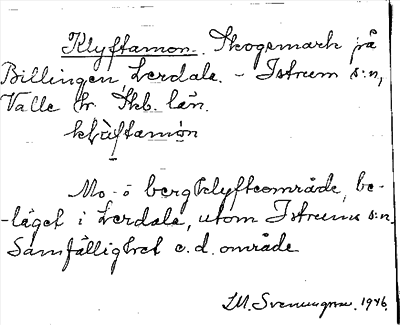 Klyftamon. Skogsmark på
Billingen, Lerdala. - Istrum s:n,
Valle hr. Skb. län.
klỳftamòn
Mo- o bergklyfteområde, be-
-läget i Lerdala, utom Istrums s:n.
Samfällighet e.d. område
1946.